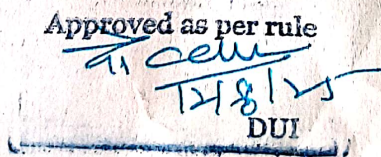 Approved as per rule
12/8/25
DUI